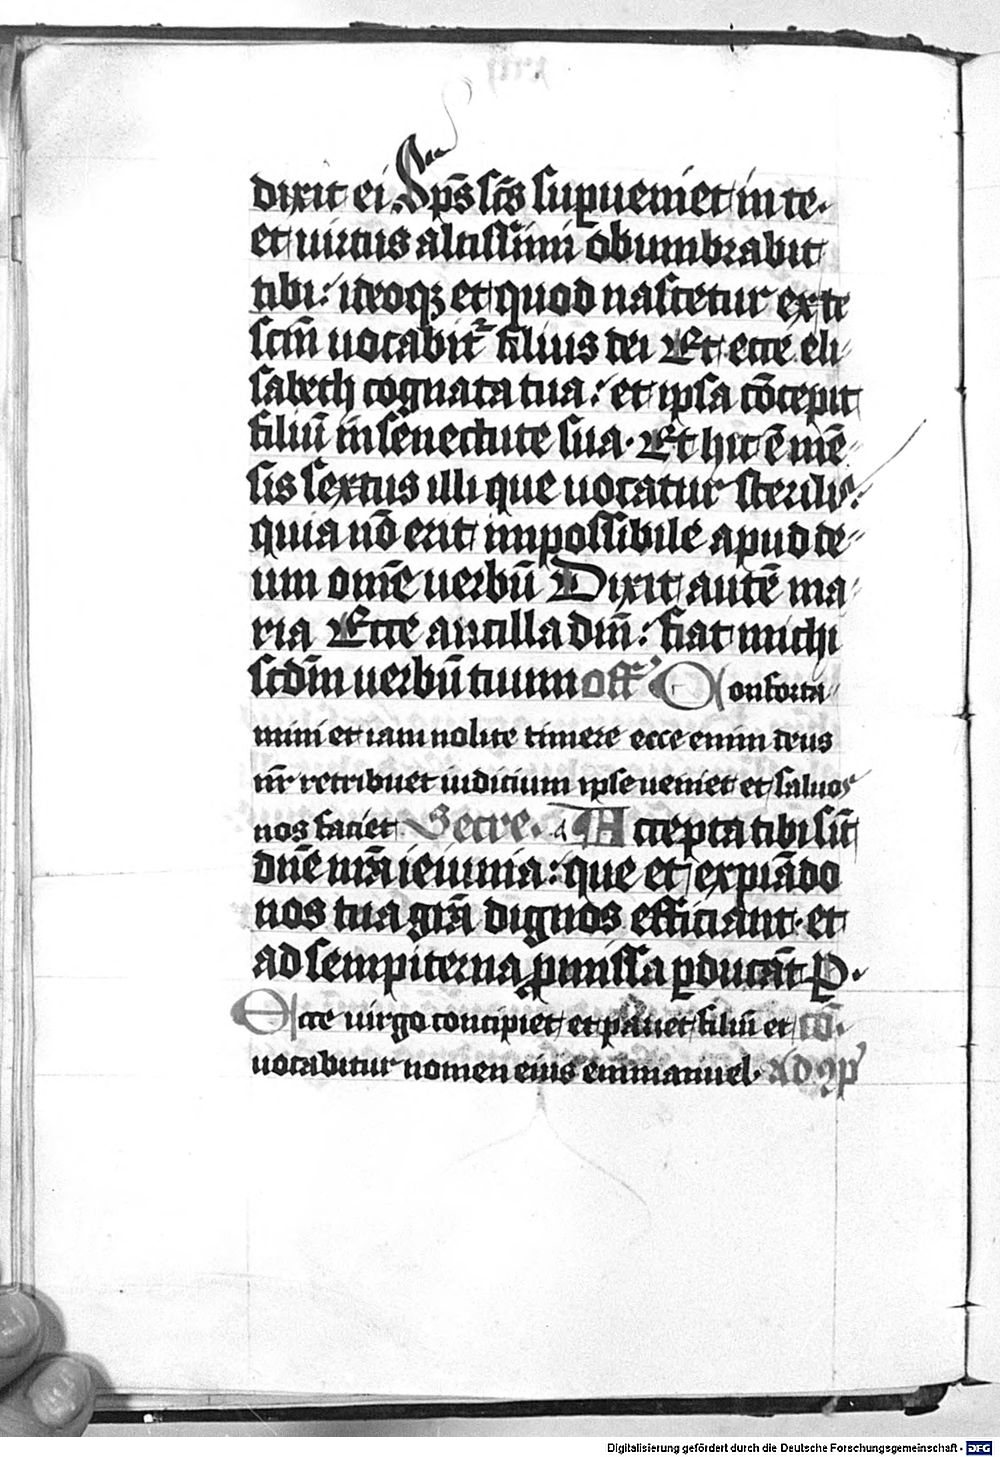 dixit ei Sp̄s sc̄s supueniet in te.
et uirtus altissimi obumbrabit
tibi: ideoqꝫ et quod nascetur ex te
scm̄ uocabit᷑ filius dei Et ecce eli
sabeth cognata tua: et ipsa cōcepit
filiū in senectute sua. Et hic ē mē
sis sextus illi que uocatur sterilis:
quia nō erit impossibile apud de
um om̄e uerbū Dixit autē ma
ria Ecce ancilla dn̄i: fiat michi
scd̄m uerbū tuum off' Conforta
mini et iam nolite timere ecce enim deus
nr̄ retribuet iudicium ipse ueniet et saluos
nos faciet Secre. a Accepta tibi sūt
dn̄e nr̄a ieiunia: que et expiādo
nos tua gr̄a dignos efficiant. et
ad sempiterna ꝓmissa ꝑducāt P.
Ecce uirgo concipiet et pariet filiū et cō.
uocabitur nomen eius emmanuel. Ad ꝯp'
Digitalisierung gefördert durch die Deutsche Forschungsgemeinschaft - DFG